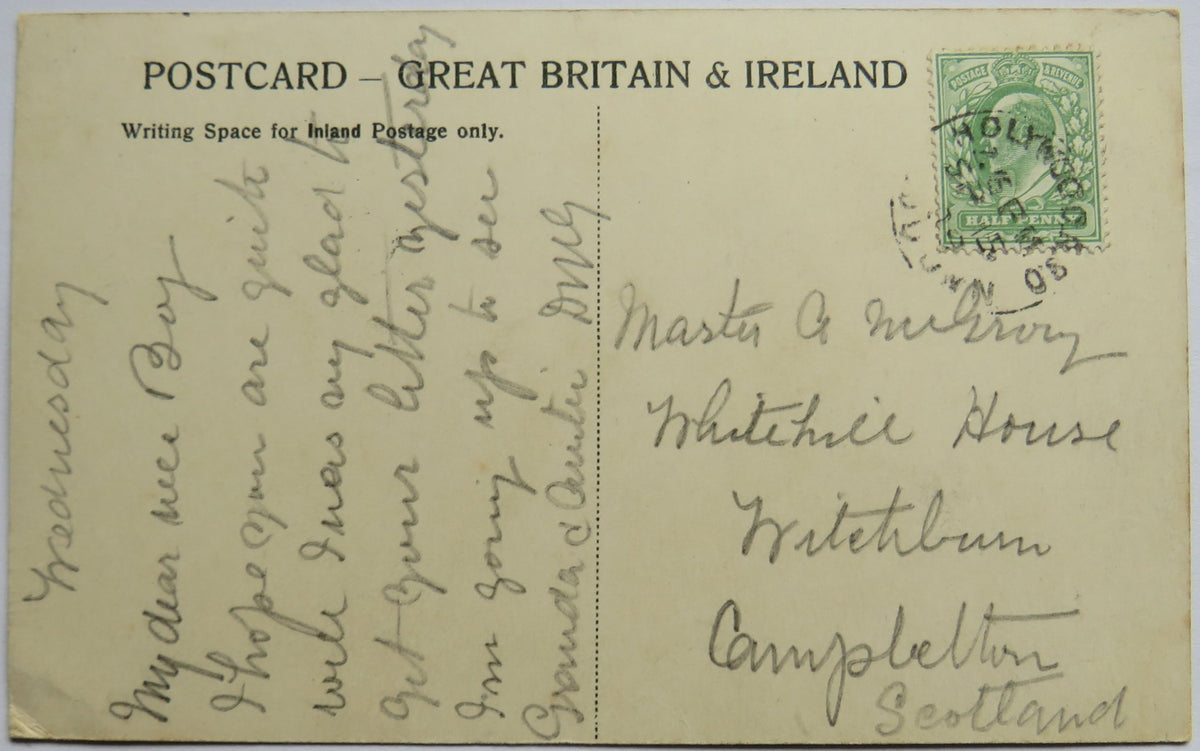 POSTCARD – GREAT BRITAIN & IRELAND
Writing Space for Inland Postage only.
Wednesday
My dear wee Boy
I hope you are quite
well I was very glad to
get your letter yesterday
I'm going up to see
Granda & Auntie
POSTAGE & REVENUE
HALFPENNY
HOLYWOOD
CO DOWN
Master A McGrory
Whitehill House
Witchburn
Campbelton
Scotland